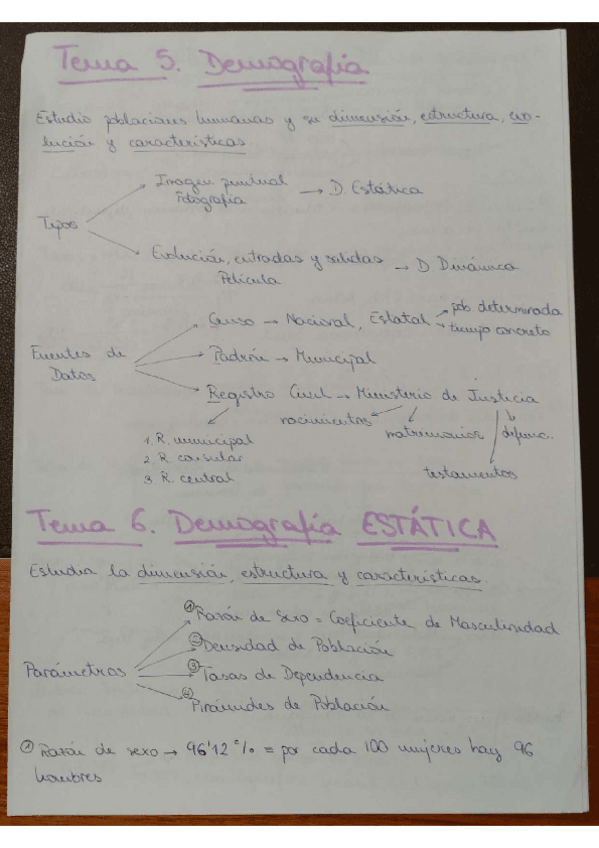 Tema 5. Demografía
Estudio poblaciones humanas y su dimensión, estructura, evo-
lución y características
Tipos
Imagen puntual → D. Estática
Fotografía
Evolución, entradas y salidas → D. Dinámica
Película
Fuentes de
Datos
Censo → Nacional, Estatal
pob. determinada
tiempo concreto
Padrón → Municipal
Registro Civil → Ministerio de Justicia
nacimientos
matrimonios
defunc.
testamentos
1. R. municipal
2 R. consular
3 R. central
Tema 6. Demografía ESTÁTICA
Estudia la dimensión, estructura y características.
Parámetros
① Razón de sexo = Coeficiente de Masculinidad
② Densidad de Población
③ Tasas de Dependencia
④ Pirámides de Población
① Razón de sexo → 96'12 % = por cada 100 mujeres hay 96
hombres